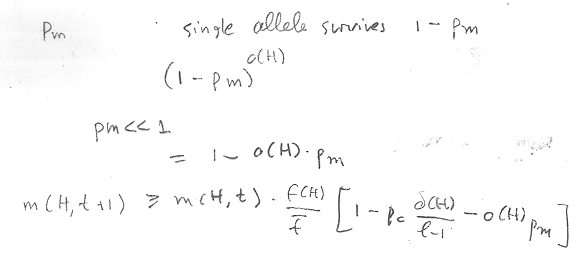 Pm single allele survives 1 - Pm
(1 - Pm)^o(H)
pm << 1
= 1 - o(H) · pm
m(H, t+1) ≥ m(H, t) · f(H)/f̄ [1 - pc δ(H)/(ℓ-1) - o(H) pm]